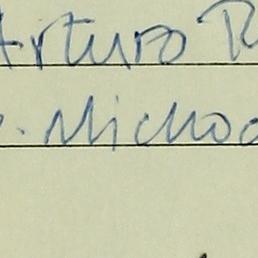 Arturo R
. Michoa